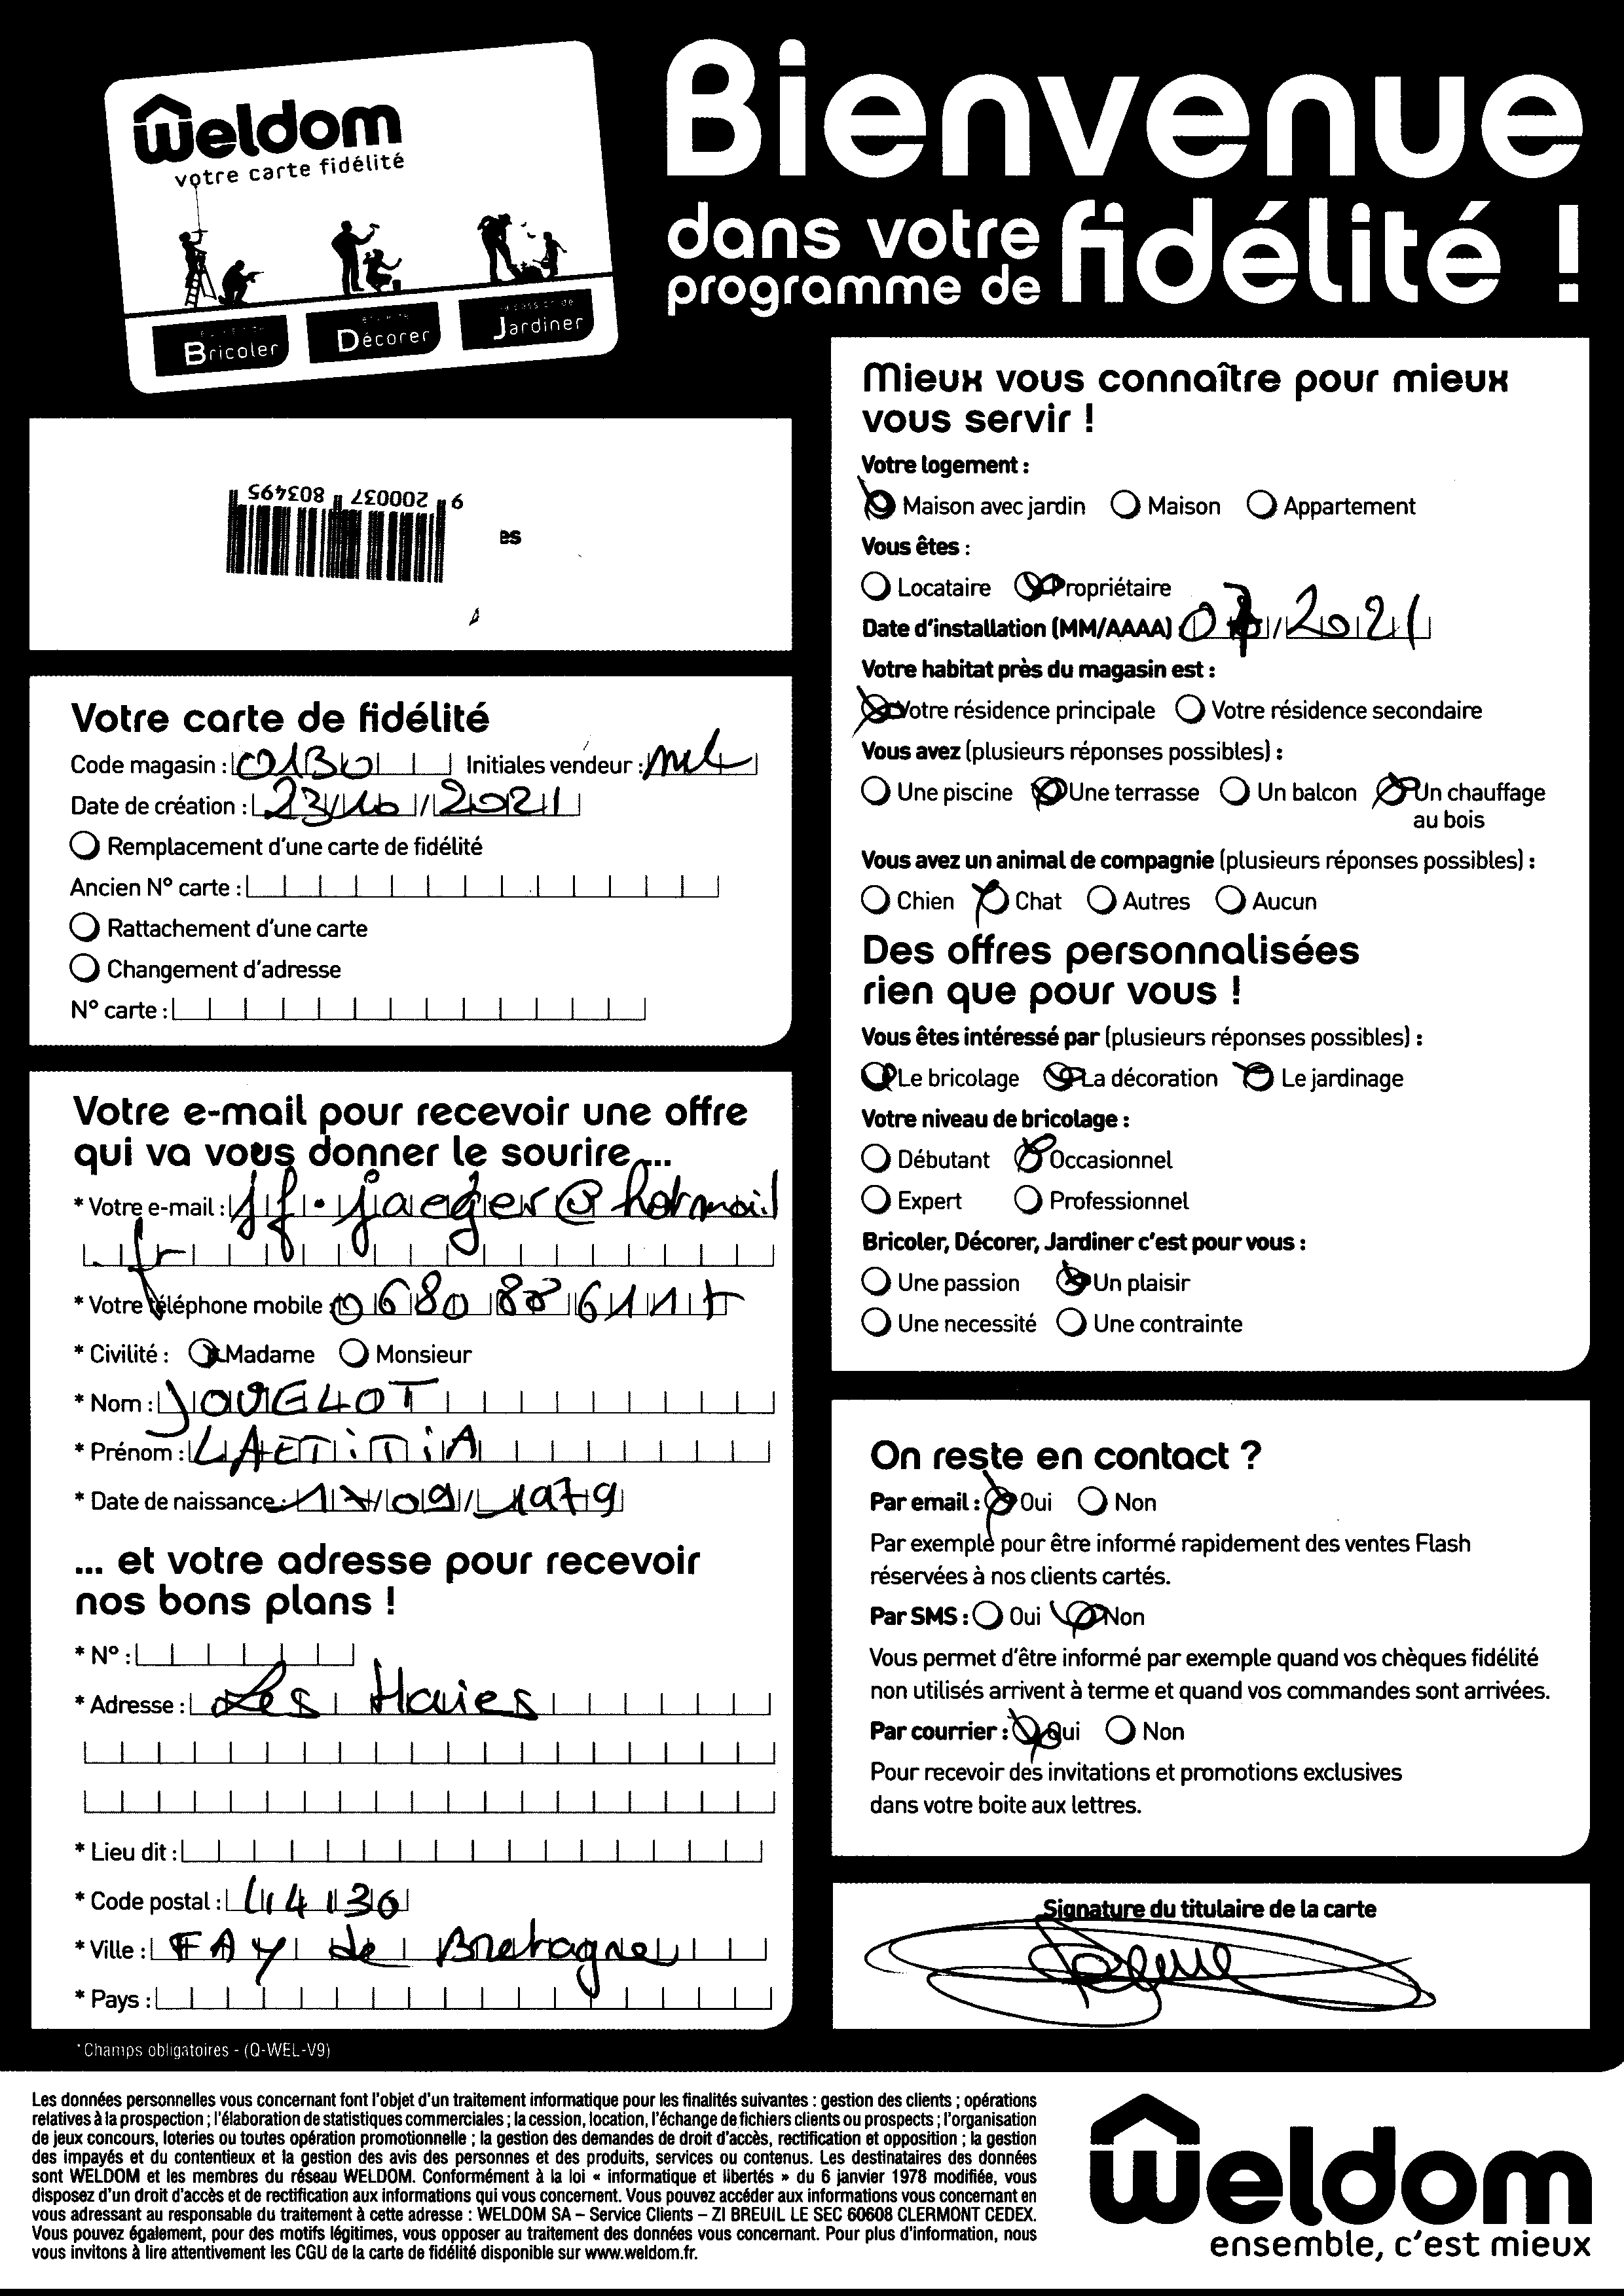 Weldom
votre carte fidélité
Bricoler
Décorer
Jardiner
Bienvenue
dans votre
programme de fidélité !
9 200037 803495
es
Votre carte de fidélité
Code magasin : 0130 Initiales vendeur :
Date de création : 23/10/2021
Remplacement d'une carte de fidélité
Ancien N° carte :
Rattachement d'une carte
Changement d'adresse
N° carte :
Votre e-mail pour recevoir une offre
qui va vous donner le sourire...
* Votre e-mail : jf.jaeger@hotmail
.fr
* Votre téléphone mobile : 0680886117
* Civilité : Madame Monsieur
* Nom : JOUGLOT
* Prénom : LAETiTiA
* Date de naissance : 17/09/1979
... et votre adresse pour recevoir
nos bons plans !
* N° :
* Adresse : Les Haies
* Lieu dit :
* Code postal : 44130
* Ville : FAY de Bretagne
* Pays :
* Champs obligatoires - (Q-WEL-V9)
Mieux vous connaître pour mieux
vous servir !
Votre logement :
Maison avec jardin Maison Appartement
Vous êtes :
Locataire Propriétaire
Date d'installation (MM/AAAA) 07/2021
Votre habitat près du magasin est :
Votre résidence principale Votre résidence secondaire
Vous avez (plusieurs réponses possibles) :
Une piscine Une terrasse Un balcon Un chauffage
au bois
Vous avez un animal de compagnie (plusieurs réponses possibles) :
Chien Chat Autres Aucun
Des offres personnalisées
rien que pour vous !
Vous êtes intéressé par (plusieurs réponses possibles) :
Le bricolage La décoration Le jardinage
Votre niveau de bricolage :
Débutant Occasionnel
Expert Professionnel
Bricoler, Décorer, Jardiner c'est pour vous :
Une passion Un plaisir
Une necessité Une contrainte
On reste en contact ?
Par email : Oui Non
Par exemple pour être informé rapidement des ventes Flash
réservées à nos clients cartés.
Par SMS : Oui Non
Vous permet d'être informé par exemple quand vos chèques fidélité
non utilisés arrivent à terme et quand vos commandes sont arrivées.
Par courrier : Oui Non
Pour recevoir des invitations et promotions exclusives
dans votre boite aux lettres.
Signature du titulaire de la carte
Les données personnelles vous concernant font l'objet d'un traitement informatique pour les finalités suivantes : gestion des clients ; opérations
relatives à la prospection ; l'élaboration de statistiques commerciales ; la cession, location, l'échange de fichiers clients ou prospects ; l'organisation
de jeux concours, loteries ou toutes opération promotionnelle ; la gestion des demandes de droit d'accès, rectification et opposition ; la gestion
des impayés et du contentieux et la gestion des avis des personnes et des produits, services ou contenus. Les destinataires des données
sont WELDOM et les membres du réseau WELDOM. Conformément à la loi « informatique et libertés » du 6 janvier 1978 modifiée, vous
disposez d'un droit d'accès et de rectification aux informations qui vous concernent. Vous pouvez accéder aux informations vous concernant en
vous adressant au responsable du traitement à cette adresse : WELDOM SA – Service Clients – ZI BREUIL LE SEC 60608 CLERMONT CEDEX.
Vous pouvez également, pour des motifs légitimes, vous opposer au traitement des données vous concernant. Pour plus d'information, nous
vous invitons à lire attentivement les CGU de la carte de fidélité disponible sur www.weldom.fr.
Weldom
ensemble, c'est mieux